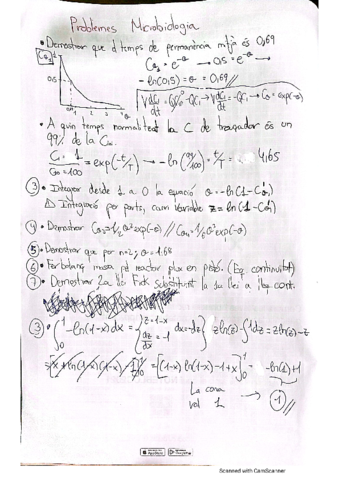 Problemes Microbiologia
• Demostrar que el temps de permanència mitjà és 0,69
Cθ₁ = e^-θ → 0,5 = e^-θ →
Cθ₁
0,5
-ln(0,5) = θ = 0,69//
V dC/dt = QC⁰ - QC₁ → V dC/dt = -QC₁ → Cθ = exp(-θ)
• A quin temps normalitzat la C de traçador és un
99% de la C
= exp(-t/T) → -ln(99/100) = t/T = 4,65
③ • Integrar desde 1 a 0 la equació θ = -ln(1-Cθ₁)
△ Integració per parts, canvi variable z = ln(1-Cθ₁)
④ • Demostrar Cθ₃ = 1/2 θ² exp(-θ) // Cθ₄ = 1/6 θ³ exp(-θ)
⑤ • Demostrar que per n=2; θ = 1.68
⑥ • Fer balanç massa pel reactor plux en pistó. (Eq continuïtat)
⑦ • Demostrar 2a llei Fick substituint la 1a llei a l'eq cont.
③ • ∫₀¹ -ln(1-x)dx = { z = 1-x dz/dx = -1 dx = -dz } z ln(z) - ∫1dz = z ln(z) - z
= [(1-x) ln(1-x) -1+x]₀¹ = -ln(1)+1
La cara
vol 1 → -1//
Scanned with CamScanner